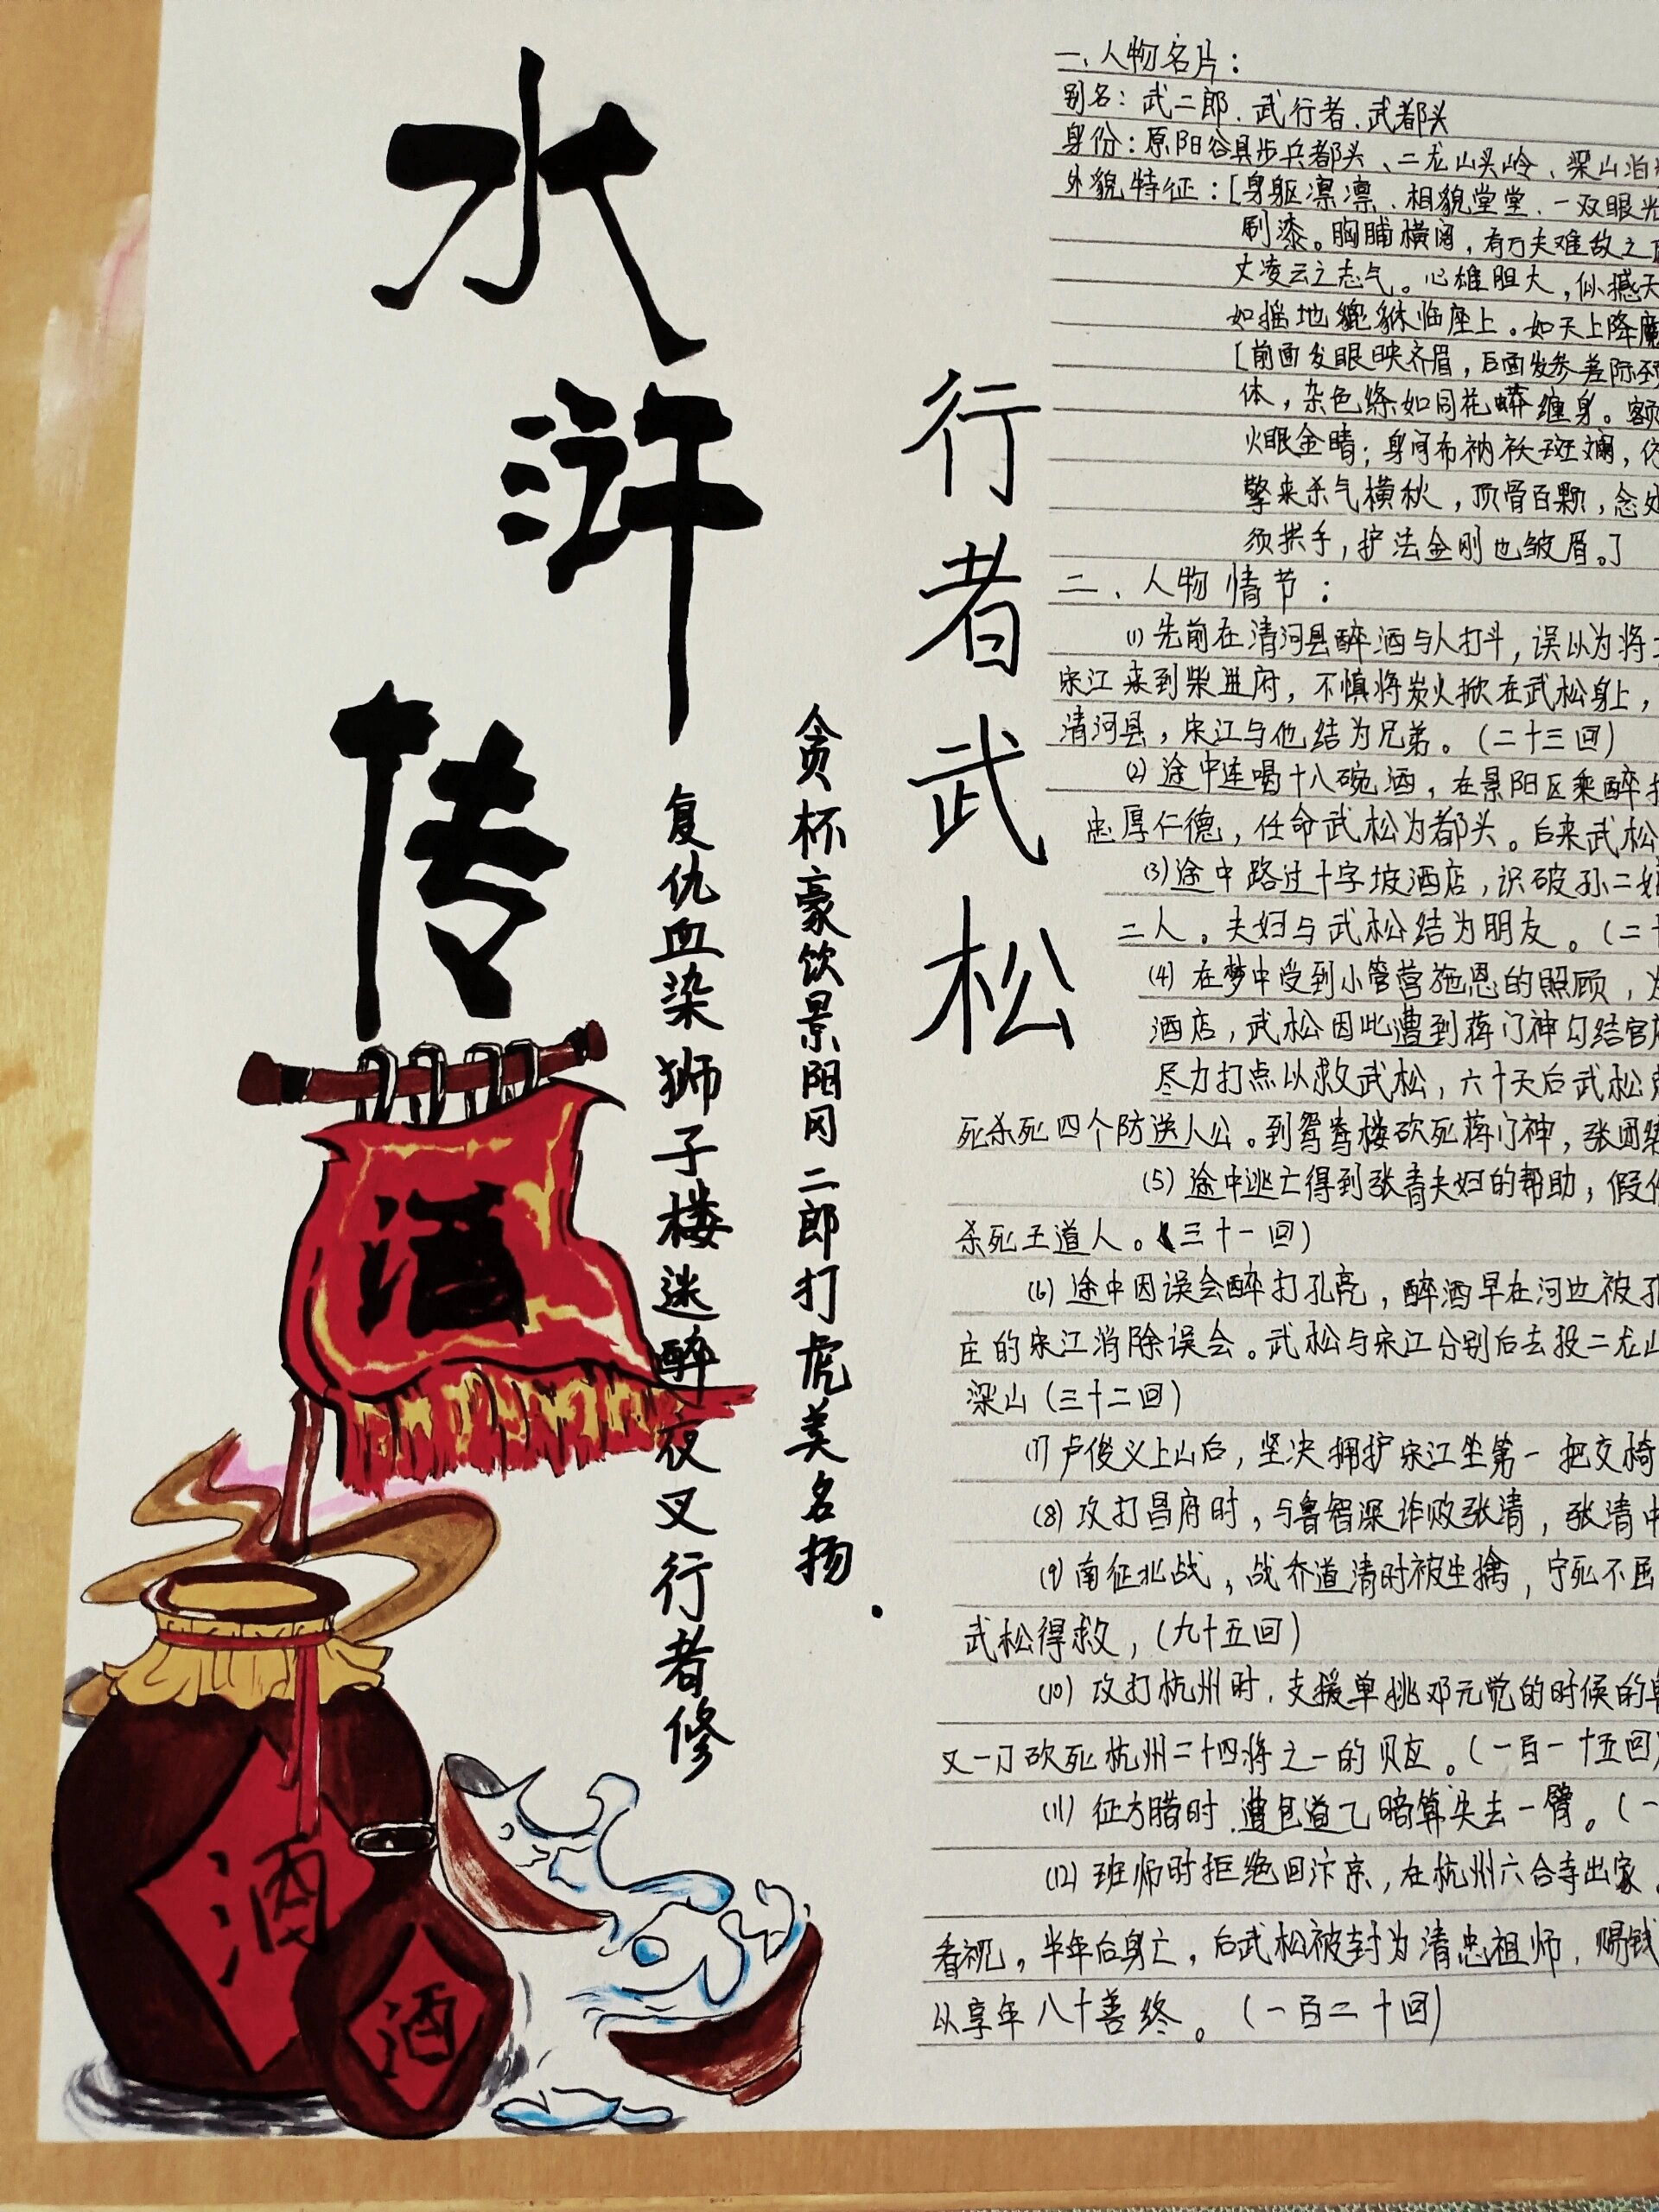 水浒传
行者武松
贪杯豪饮景阳冈二郎打虎美名扬.
复仇血染狮子楼迷醉夜叉行者修
酒
酒
酒
一、人物名片：
别名：武二郎、武行者、武都头
身份：原阳谷县步兵都头、二龙山头岭、梁山泊
外貌特征：[身躯凛凛、相貌堂堂、一双眼光
刷漆。胸脯横阔，有万夫难敌之
丈凌云之志气。心雄胆大，似撼天
如摇地貔貅临座上。如天上降魔
[前面发眼映齐眉，后面发参差际
体，杂色绦如同花蟒缠身。额
火眼金睛；身间布衲袄斑斓，
擎来杀气横秋，顶骨百颗，念处
须拱手，护法金刚也皱眉。]
二、人物情节：
(1)先前在清河县醉酒与人打斗，误以为将
宋江来到柴进府，不慎将炭火掀在武松身上，
清河县，宋江与他结为兄弟。(二十三回)
(2)途中连喝十八碗酒，在景阳区乘醉
忠厚仁德，任命武松为都头。后来武松
(3)途中路过十字坡酒店，识破孙二娘
二人。夫妇与武松结为朋友。(二十
(4)在梦中受到小管营施恩的照顾，
酒店，武松因此遭到蒋门神勾结官府
尽力打点以救武松，六十天后武松
死杀死四个防送人公。到鸳鸯楼砍死蒋门神，张团练
(5)途中逃亡得到张青夫妇的帮助，假
杀死王道人。(三十一回)
(6)途中因误会醉打孔亮，醉酒早在河边被孔
庄的宋江消除误会。武松与宋江分别后去投二龙山
梁山(三十二回)
(7)卢俊义上山后，坚决拥护宋江坐第一把交椅
(8)攻打昌府时，与鲁智深诈败张清，张清中
(9)南征北战，战乔道清时被生擒，宁死不屈
武松得救，(九十五回)
(10)攻打杭州时，支援单挑邓元觉的时候的鲁
又一刀砍死杭州二十四将之一的贝应。(一百一十五回)
(11)征方腊时，遭包道乙暗算失去一臂。(一
(12)班师时拒绝回汴京，在杭州六合寺出家
看视，半年后身亡，后武松被封为清忠祖师，赐钱
以享年八十善终。(一百二十回)